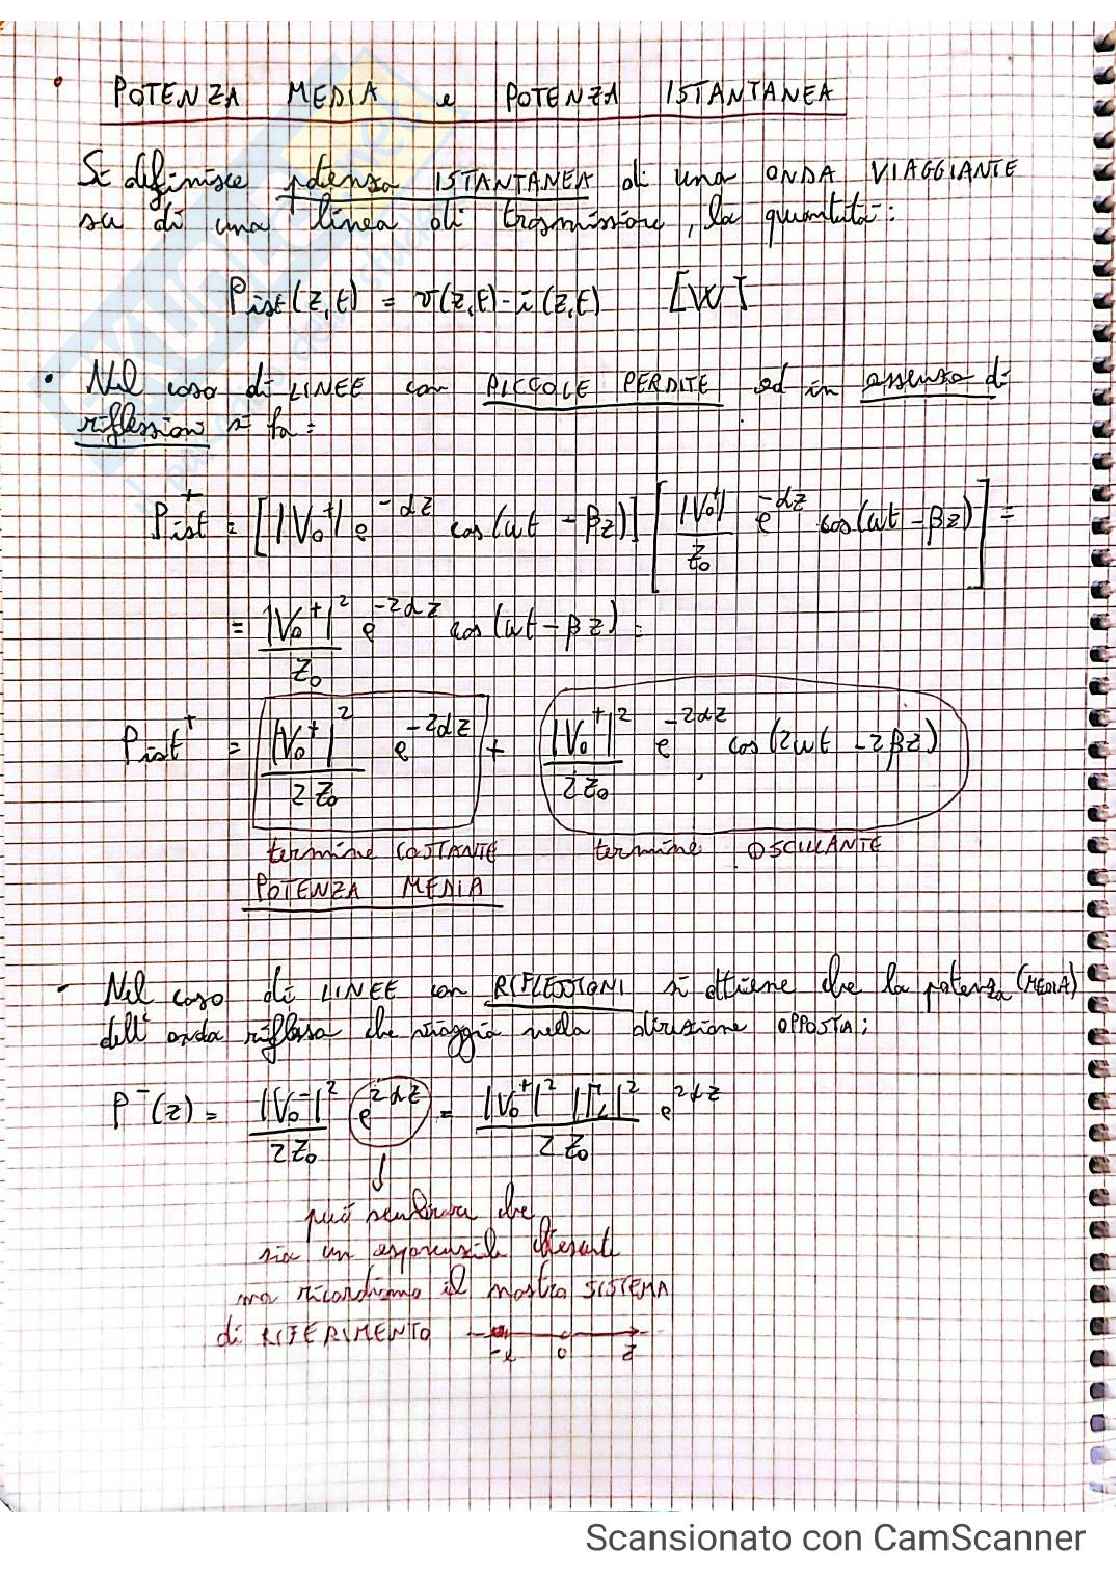 • POTENZA MEDIA e POTENZA ISTANTANEA
Si definisce potenza ISTANTANEA di una ONDA VIAGGIANTE
su di una linea di trasmissione, la quantità:
Pist(z,t) = v(z,t)·i(z,t) [W]
• Nel caso di LINEE con PICCOLE PERDITE ed in assenza di
riflessioni si ha:
Pist⁺ = [|V₀⁺| e^(-αz) cos(ωt - βz)] [|V₀⁺|/Z₀ e^(-αz) cos(ωt - βz)] =
= |V₀⁺|²/Z₀ e^(-2αz) cos(ωt - βz) =
Pist⁺ = |V₀⁺|²/2Z₀ e^(-2αz) + |V₀⁺|²/2Z₀ e^(-2αz) cos(2ωt - 2βz)
termine COSTANTE termine OSCILLANTE
POTENZA MEDIA
- Nel caso di LINEE con RIFLESSIONI si ottiene che la potenza (MEDIA)
dell'onda riflessa che viaggia nella direzione OPPOSTA:
P⁻(z) = |V₀⁻|²/2Z₀ e^(2αz) = |V₀⁺|² |Γ_L|²/2Z₀ e^(2αz)
può sembrare che
sia un esponenziale
ma ricordiamo il nostro SISTEMA
di RIFERIMENTO
-l 0 z
Scansionato con CamScanner